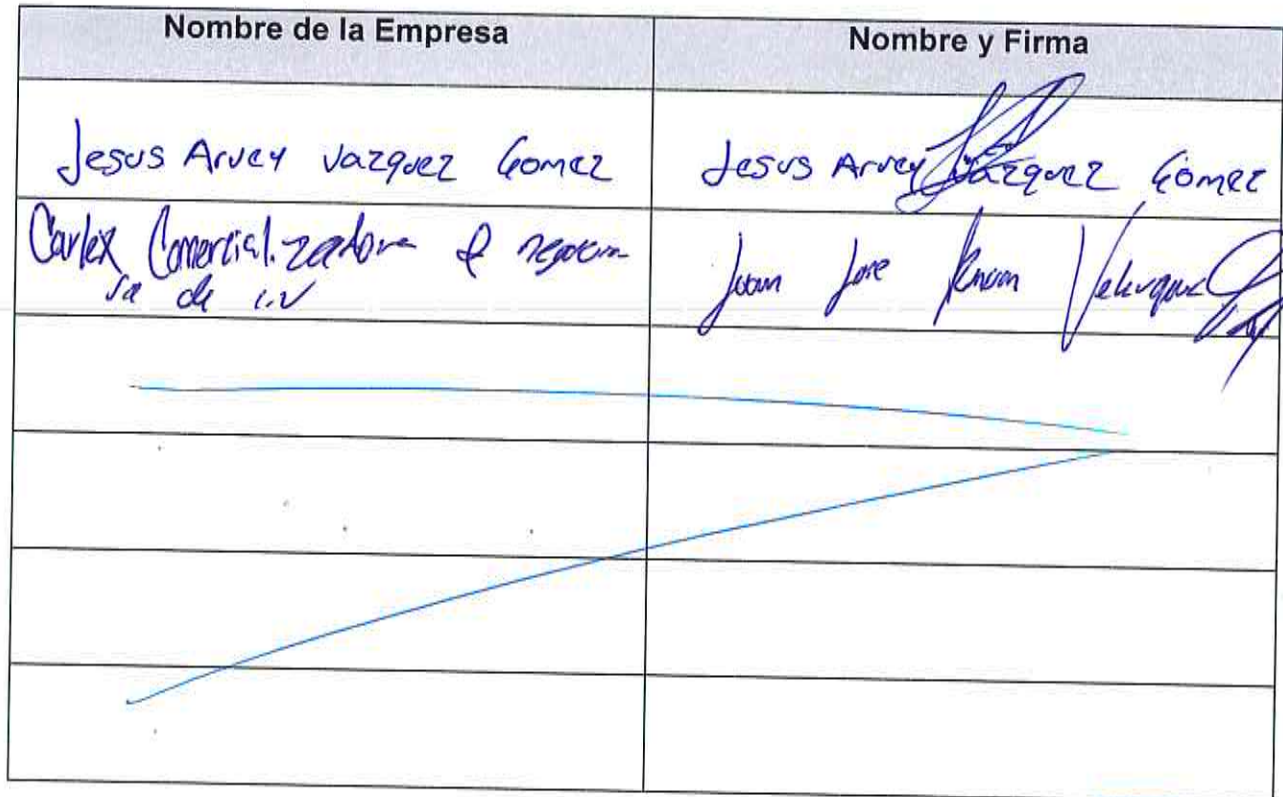 Nombre de la Empresa
Nombre y Firma
Jesus Arvey Vazquez Gomez
Jesus Arvey Vazquez Gomez
Carlex Comercializadora
sa de c.v
Juan Jose